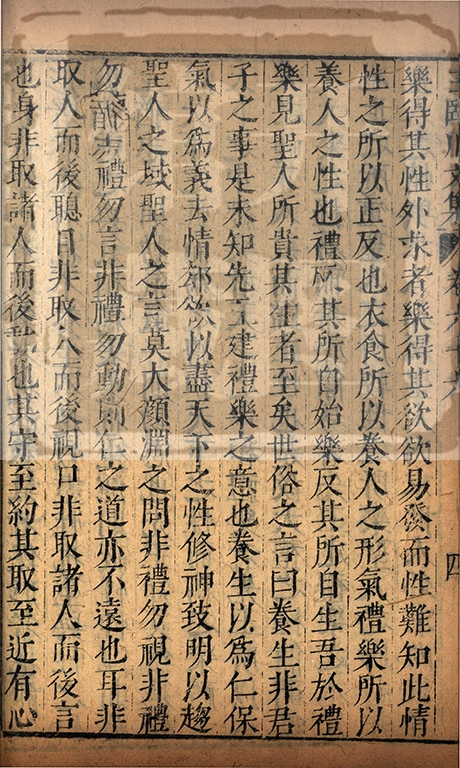 王臨川文集 卷六十六 四
樂得其性外求者樂得其欲欲易發而性難知此情
性之所以正反也衣食所以養人之形氣禮樂所以
養人之性也禮反其所自始樂反其所自生吾於禮
樂見聖人所貴其生者至矣世俗之言曰養生非君
子之事是未知先王建禮樂之意也養生以為仁保
氣以為義去情卻欲以盡天下之性修神致明以趨
聖人之域聖人之言莫大顏淵之問非禮勿視非禮
勿聽非禮勿言非禮勿動則仁之道亦不遠也耳非
取人而後聰目非取人而後視口非取諸人而後言
也身非取諸人而後動也其守至約其取至近有心